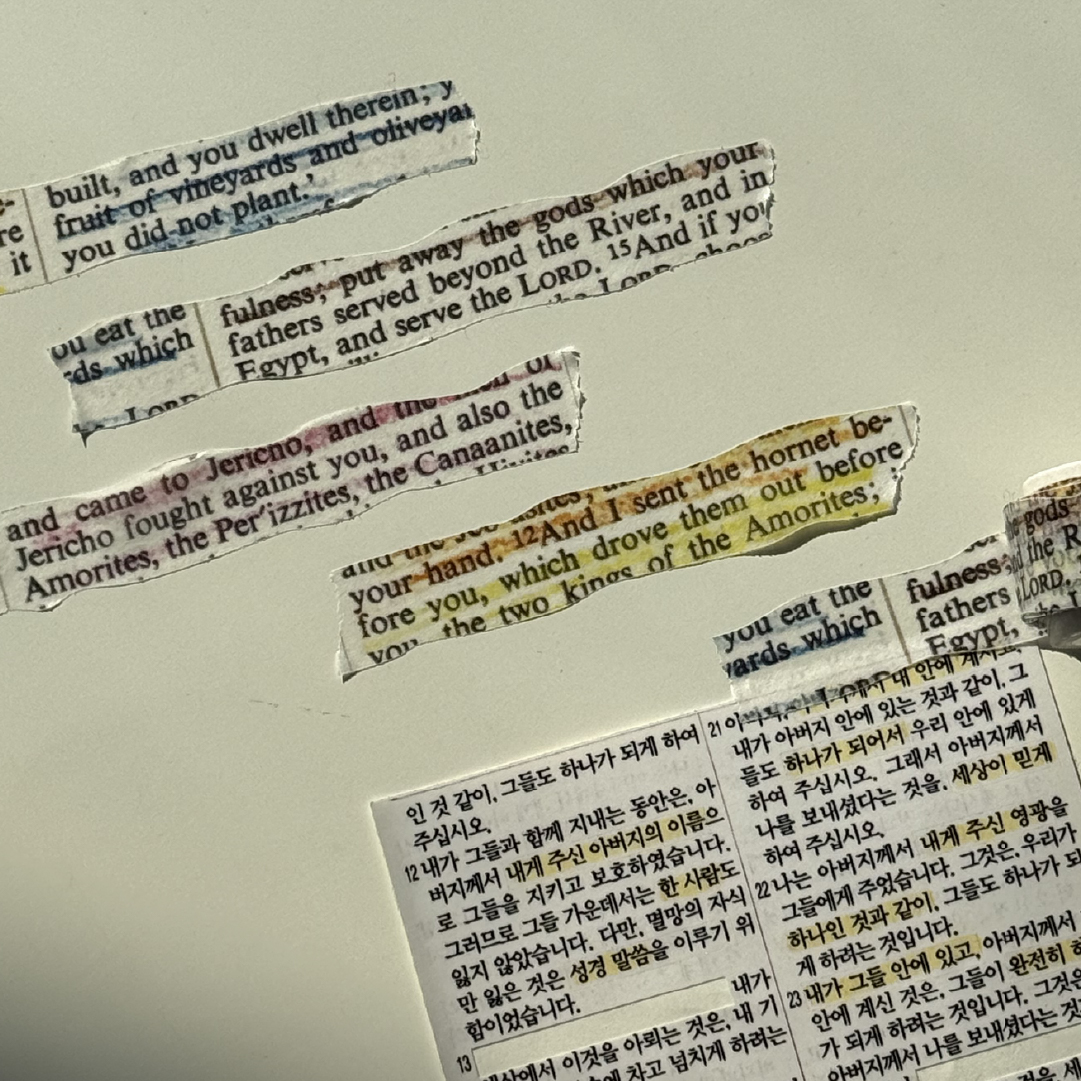 re
it
built, and you dwell therein; y
fruit of vineyards and oliveyar
you did not plant.'
ou eat the
rds which
LORD
fulness; put away the gods which your
fathers served beyond the River, and in
Egypt, and serve the LORD. 15And if you
the LORD, choos
and came to Jericho, and the men of
Jericho fought against you, and also the
Amorites, the Per'izzites, the Canaanites,
Hivites
and the
your hand. 12And I sent the hornet be-
fore you, which drove them out before
you, the two kings of the Amorites;
you eat the
yards which
LORD
fulness;
fathers
Egypt,
gods
the R
LORD.
인 것 같이, 그들도 하나가 되게 하여
주십시오.
12 내가 그들과 함께 지내는 동안은, 아
버지께서 내게 주신 아버지의 이름으
로 그들을 지키고 보호하였습니다.
그러므로 그들 가운데서는 한 사람도
잃지 않았습니다. 다만, 멸망의 자식
만 잃은 것은 성경 말씀을 이루기 위
함이었습니다.
내가
13
세상에서 이것을 아뢰는 것은, 내 기
차고 넘치게 하려는
21
내 안에 계시고,
내가 아버지 안에 있는 것과 같이, 그
들도 하나가 되어서 우리 안에 있게
하여 주십시오. 그래서 아버지께서
나를 보내셨다는 것을, 세상이 믿게
하여 주십시오.
22 나는 아버지께서 내게 주신 영광을
그들에게 주었습니다. 그것은, 우리가
하나인 것과 같이, 그들도 하나가 되
게 하려는 것입니다.
23 내가 그들 안에 있고, 아버지께서
안에 계신 것은, 그들이 완전히 하
가 되게 하려는 것입니다. 그것은
아버지께서 나를 보내셨다는 것